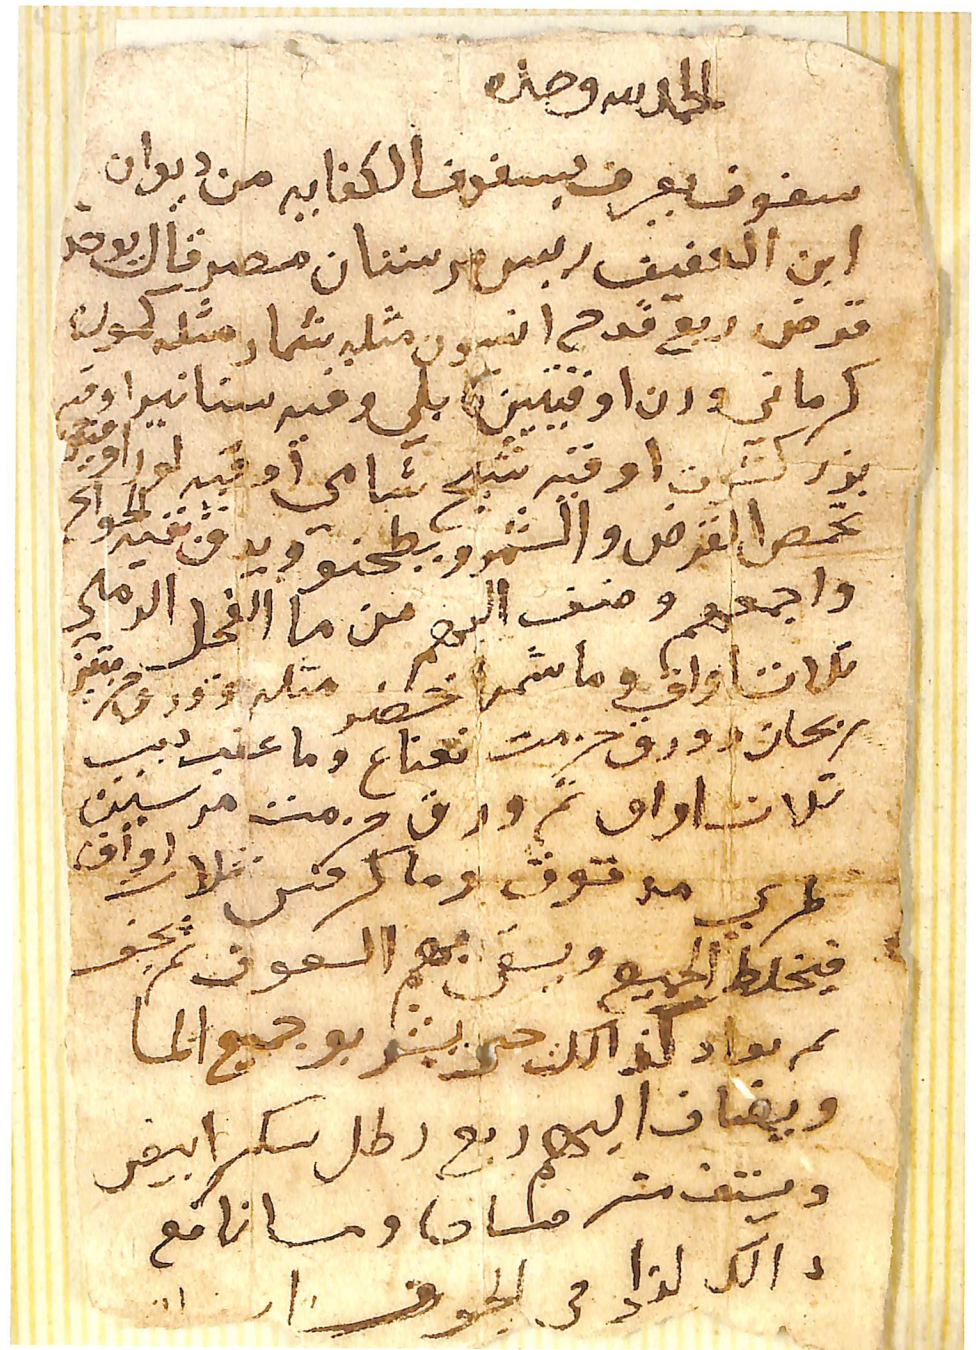 الحمد لله وحده
سفوف يعرف بسفوف الكفايه من ديوان
ابن العفيف ريس مرستان مصر قال يوخذ
قرض ربع قدح انيسون مثله شمار مثله كمون
كرماني وزن اوقيتين وقيه اوقيه
بزر اوقيه شيح شامي اوقيه لوز اوقيه
يحمص القرض والشمر ويطحنو ويدق بقية الحوايج
واجمعهم وضف اليهم من ما الفجل الرملي
تلات اواق وما شمر اخضر مثله وورق
ريحان وورق حزمت نعناع وما
تلات اواق تم ورق حزمت مرسين
طري مدقوق وما كرفس تلات اواق
فيخلط الجميع ويسقى بهم السفوف تم يجفف
تم يعاد كذالك حتى يشربو جميع الما
ويضاف اليهم ربع رطل سكر ابيض
ويستف منه صباحا ومسا نافع
دالك في الجوف